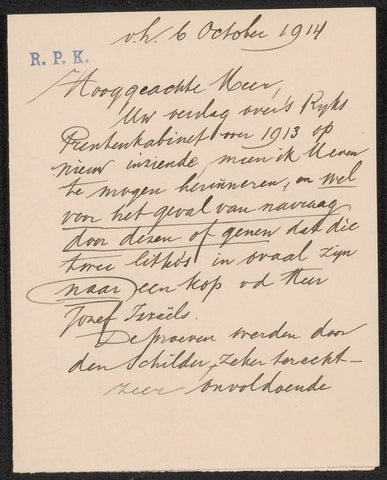 v.h. 6 October 1914
R. P. K.
Hooggeachte Heer,
Uw verslag over 's Ryks
Prentenkabinet over 1913 op
nieuw inziende, meen ik U even
te mogen herinneren, en wel
voor het geval van navraag
door dezen of genen dat die
twee litho's in ovaal zyn
naar een kop v d Heer
Jozef Israëls.
De proeven werden door
den Schilder, zeker terecht –
zeer onvoldoende